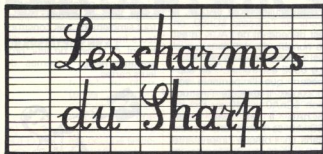 Les charmes
du Sharp